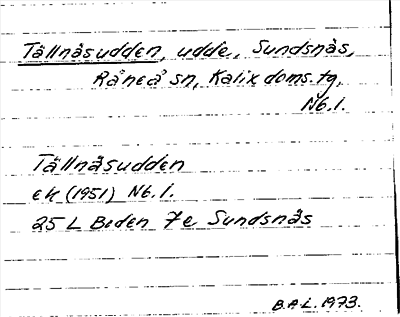 Tällnäsudden, udde, Sundsnäs,
Råneå sn, Kalix doms. tg,
Nb. l.
Tällnäsudden
ek (1951) Nb. l.
25 L Boden 7e Sundsnäs
B.A.L. 1973.